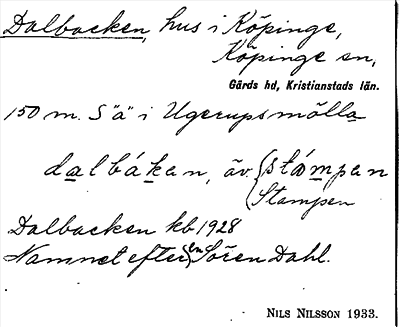 Dalbacken, hus i Köpinge,
Köpinge sn,
Gärds hd, Kristianstads län.
150 m. S "ä" i Ugerupsmölla
dalbákan, äv. {stámpan
{Stampen
Dalbacken kb 1928
Namnet efter en Sören Dahl.
NILS NILSSON 1933.